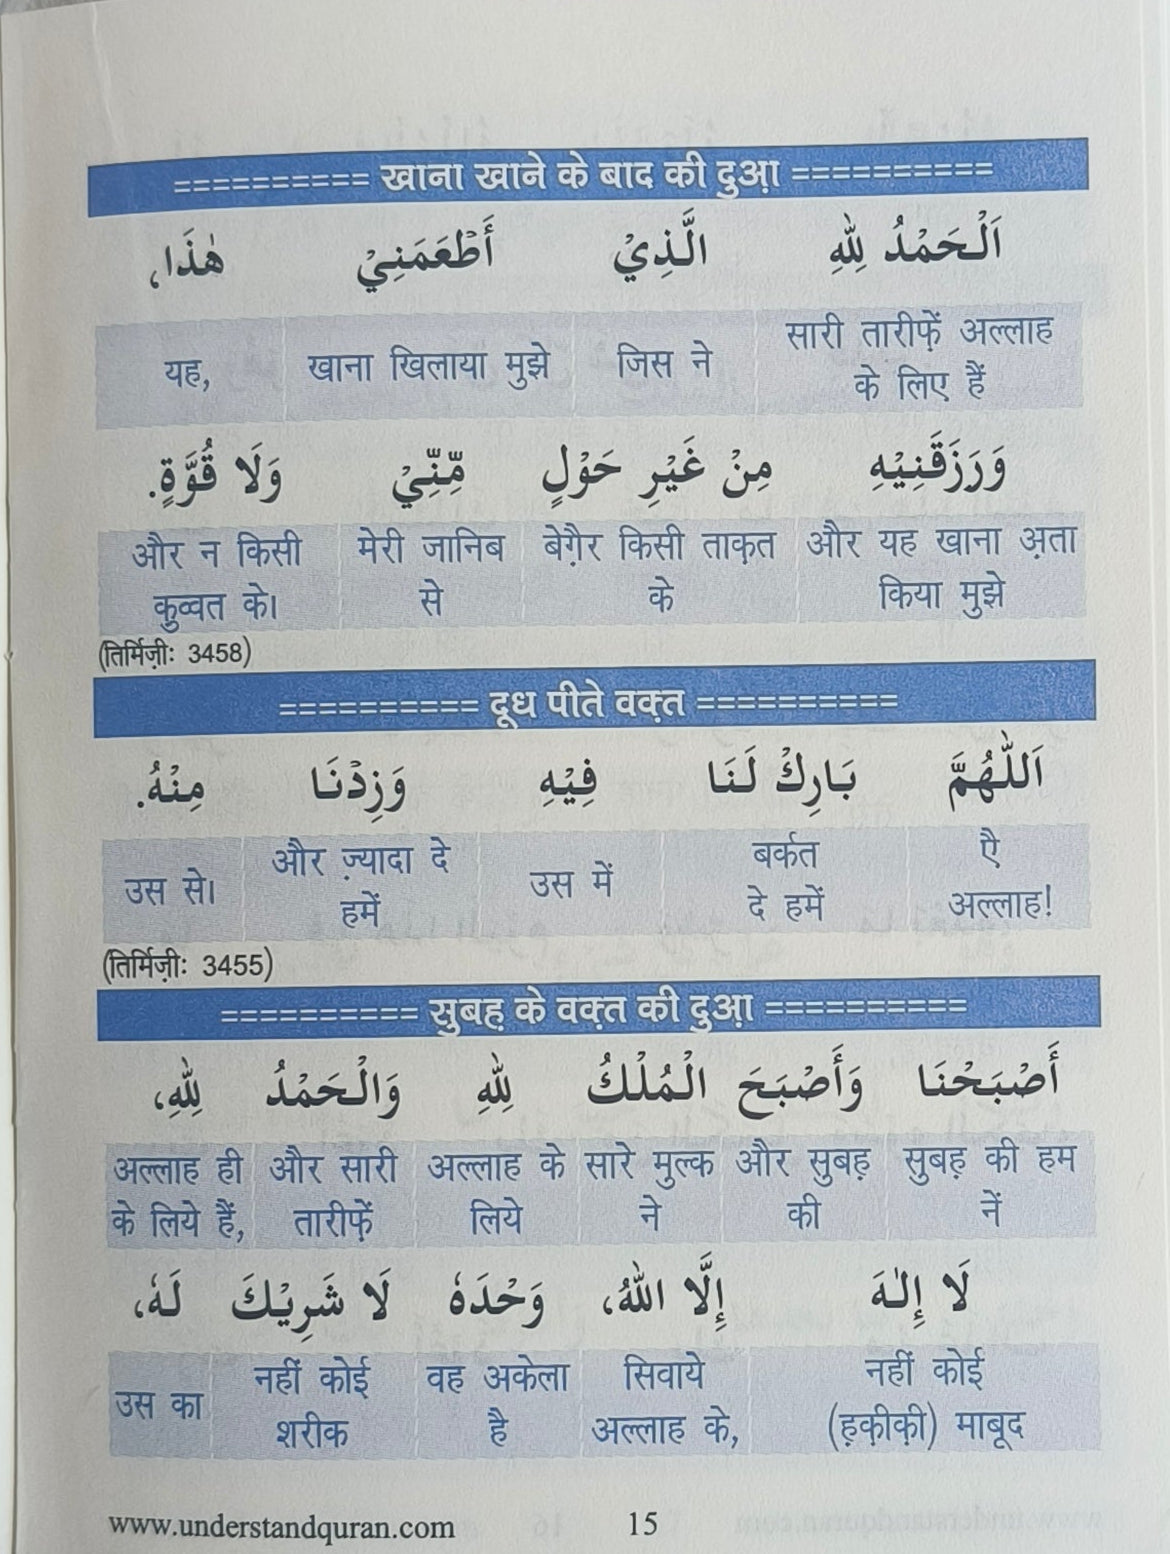 ========== खाना खाने के बाद की दुआ़ ==========
اَلْحَمْدُ لِلّٰهِ الَّذِيْ أَطْعَمَنِيْ هٰذَا،
सारी तारीफ़ें अल्लाह के लिए हैं जिस ने खाना खिलाया मुझे यह,
وَرَزَقَنِيْهِ مِنْ غَيْرِ حَوْلٍ مِّنِّيْ وَلَا قُوَّةٍ.
और यह खाना अ़ता किया मुझे बेग़ैर किसी ताक़त के मेरी जानिब से और न किसी कुव्वत के।
(तिर्मिज़ीः 3458)
========== दूध पीते वक़्त ==========
اَللّٰهُمَّ بَارِكْ لَنَا فِيْهِ وَزِدْنَا مِنْهُ.
ऐ अल्लाह! बर्कत दे हमें उस में और ज़्यादा दे हमें उस से।
(तिर्मिज़ीः 3455)
========== सुबह़ के वक़्त की दुआ़ ==========
أَصْبَحْنَا وَأَصْبَحَ الْمُلْكُ لِلّٰهِ وَالْحَمْدُ لِلّٰهِ،
सुबह़ की हम नें और सुबह़ की सारे मुल्क ने अल्लाह के लिये और सारी तारीफ़ें अल्लाह ही के लिये हैं,
لَا إِلٰهَ إِلَّا اللّٰهُ، وَحْدَهٗ لَا شَرِيْكَ لَهٗ،
नहीं कोई (ह़क़ीक़ी) माबूद सिवाये अल्लाह के, वह अकेला है नहीं कोई शरीक उस का
www.understandquran.com 15